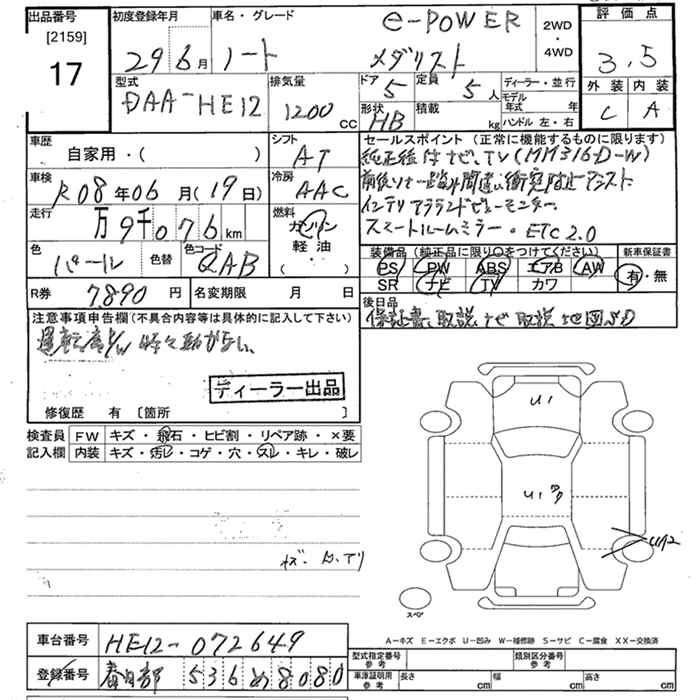 出品番号 [2159] 17
初度登録年月 29年6月
車名・グレード ノート e-POWER メダリスト
2WD・4WD
評価点 3.5
外装 C 内装 A
型式 DAA-HE12
排気量 1200 CC
ドア 5 定員 5人
形状 HB 積載 kg
ディーラー・並行
モデル年式 年
ハンドル 左・右
車歴 自家用・( )
シフト AT
セールスポイント (正常に機能するものに限ります)
純正後付ナビ、TV (MM316D-W)
インテリアラウンドビューモニター、
スマートルームミラー。ETC 2.0
車検 R08年06月(19日)
冷房 AAC
走行 万9千076km
燃料 ガソリン 軽油・( ・ )
色 パール 色替 色コード QAB
装備品 (純正品に限り○をつけてください) 新車保証書
PS PW ABS エアB AW 有・無
SR ナビ TV カワ
R券 7890円 名変期限 月 日
後日品
保証書、取説、ナビ取説 地図SD
注意事項申告欄(不具合内容等は具体的に記入して下さい)
運転席P/W 時々動かない、
ディーラー出品
修復歴 有 [箇所 ]
検査員記入欄 FW キズ・飛石・ヒビ割・リペア跡・×要
内装 キズ・汚レ・コゲ・穴・スレ・キレ・破レ
U1
U1
スペア
A−キズ E−エクボ U−凹み W−補修跡 S−サビ C−腐食 XX−交換済
車台番号 HE12-072649
型式指定番号 参考 類別区分番号 参考
登録番号 春日部 536 め 8080
車庫証明用 参考 長さ cm 幅 cm 高さ cm